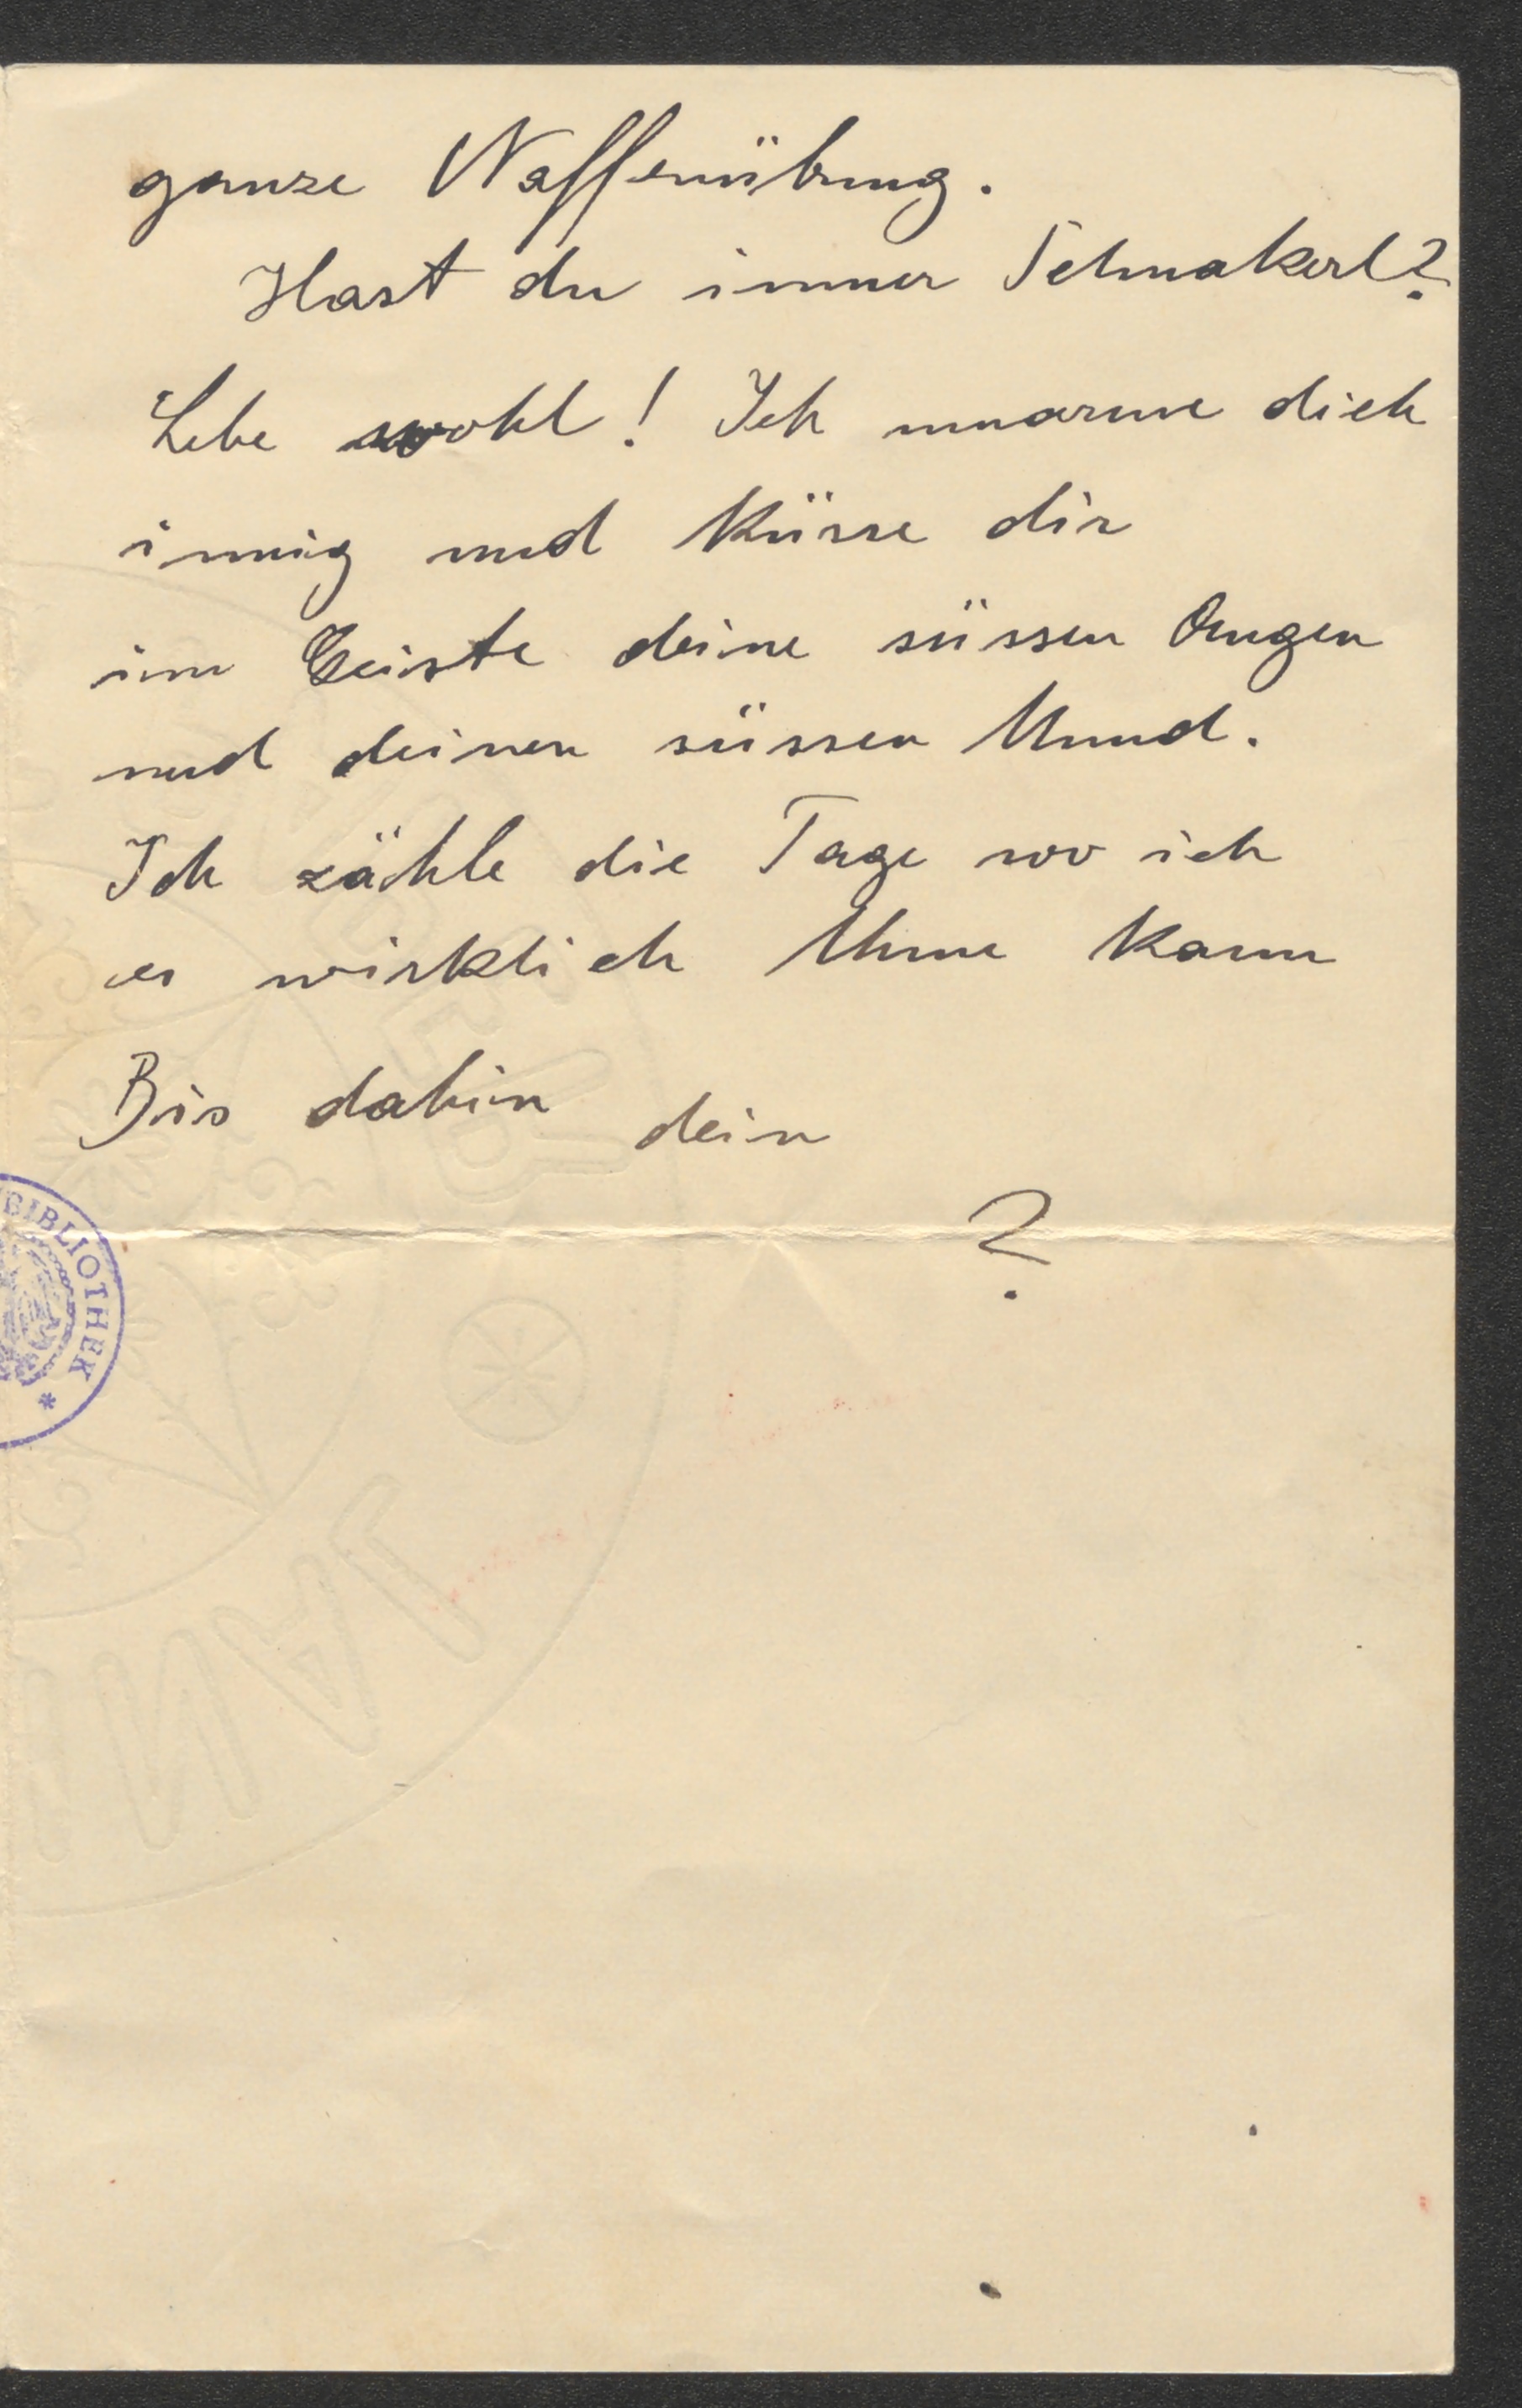 ganze Waffenübung.
Hast du immer Schnakerl?
Lebe wohl! Ich umarme dich
innig und küsse dir
im Geiste deine süssen Augen
und deinen süssen Mund.
Ich zähle die Tage wo ich
es wirklich thun kann
Bis dahin dein
?
BIBLIOTHEK *